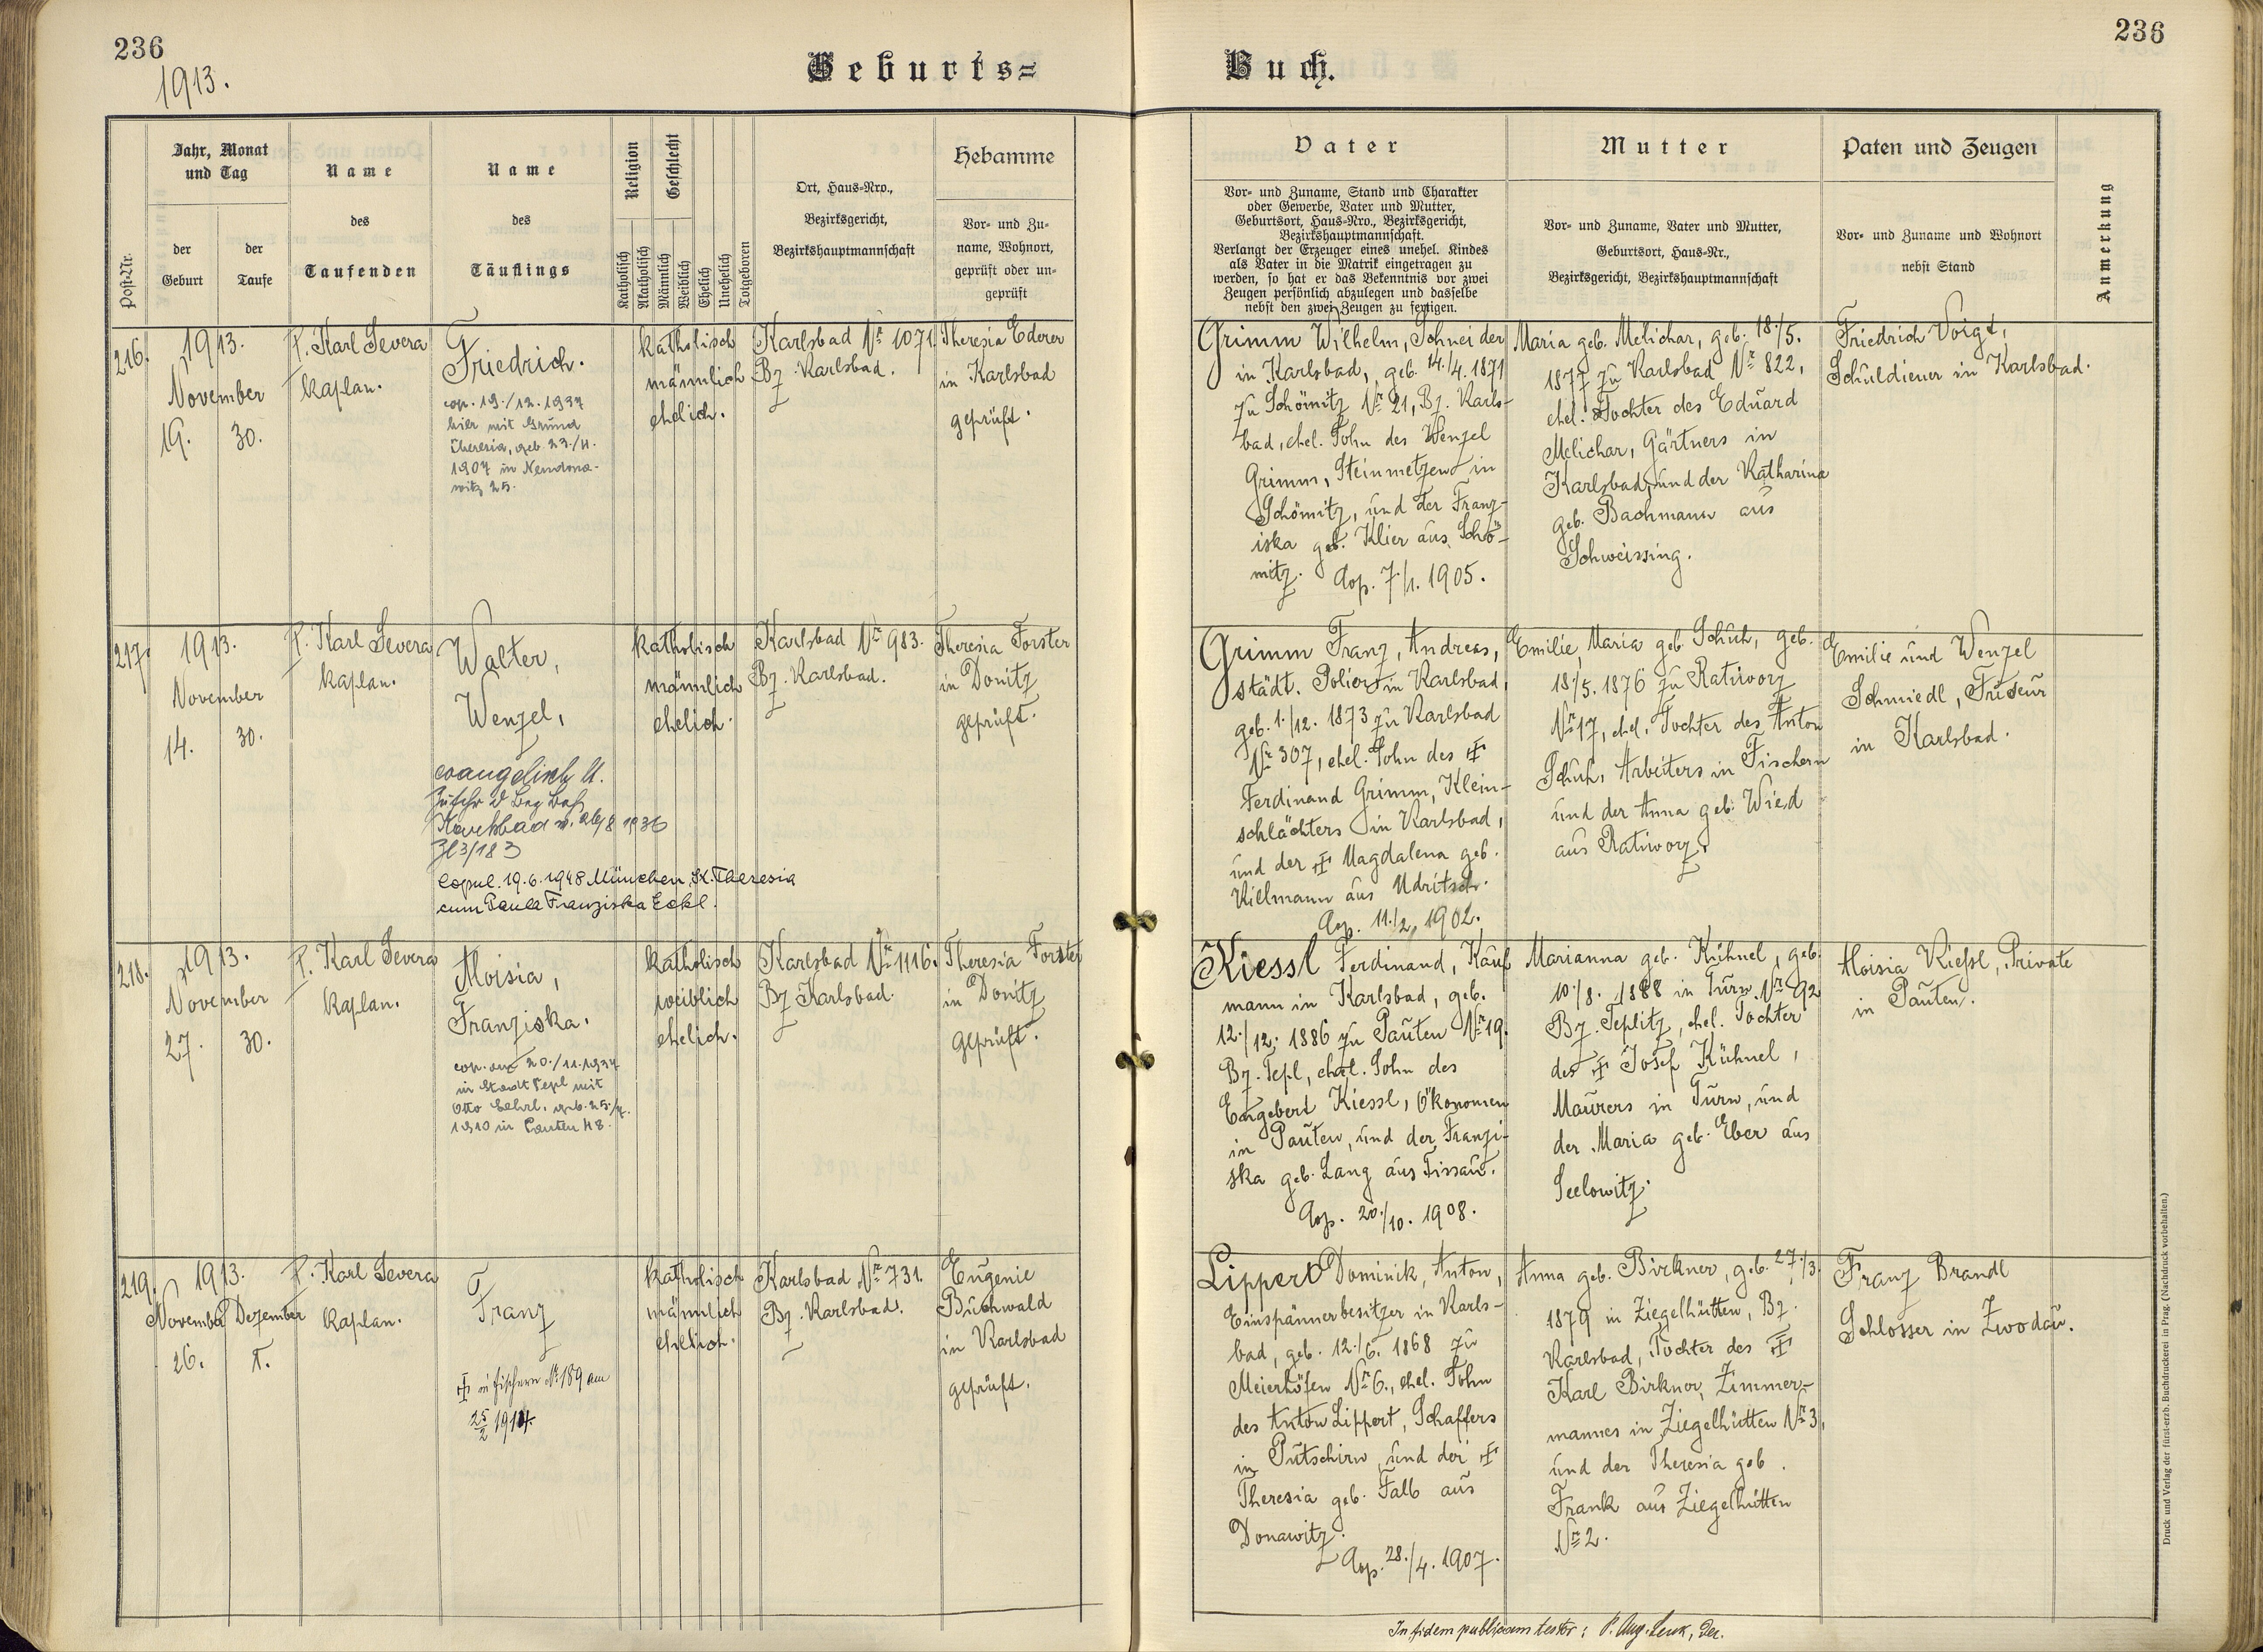 236
1913.
Geburts=
Buch.
236
Post-Nr.
Jahr, Monat
und Tag
der
Geburt
der
Taufe
Name
des
Taufenden
Name
des
Täuflings
Religion
Katholisch
Akatholisch
Geschlecht
Männlich
Weiblich
Ehelich
Unehelich
Totgeboren
Ort, Haus-Nro.,
Bezirksgericht,
Bezirkshauptmannschaft
Hebamme
Vor- und Zu-
name, Wohnort,
geprüft oder un-
geprüft
Vater
Vor- und Zuname, Stand und Charakter
oder Gewerbe, Vater und Mutter,
Geburtsort, Haus-Nro., Bezirksgericht,
Bezirkshauptmannschaft.
Verlangt der Erzeuger eines unehel. Kindes
als Vater in die Matrik eingetragen zu
werden, so hat er das Bekenntnis vor zwei
Zeugen persönlich abzulegen und dasselbe
nebst den zwei Zeugen zu fertigen.
Mutter
Vor- und Zuname, Vater und Mutter,
Geburtsort, Haus-Nr.,
Bezirksgericht, Bezirkshauptmannschaft
Paten und Zeugen
Vor- und Zuname und Wohnort
nebst Stand
Anmerkung
216.
1913.
November
19. 30.
P. Karl Severa
Kaplan.
Friedrich.
cop. 19./12. 1937
hier mit Grund
Theresia, geb. 23./4.
1907 in Neudona-
witz 25.
katholisch
männlich
ehelich.
Karlsbad Nr 1071.
Bz. Karlsbad.
Theresia Ederer
in Karlsbad
geprüft.
Grimm Wilhelm, Schneider
in Karlsbad, geb. 14./4. 1871
zu Schömitz Nr 21, Bz. Karls-
bad, ehel. Sohn des Wenzel
Grimm, Steinmetzen in
Schömitz, und der Franz-
iska geb. Klier aus Schö-
mitz. Cop. 7./1. 1905.
Maria geb. Melichar, geb. 18./5.
1877 zu Karlsbad Nr 822,
ehel. Tochter des Eduard
Melichar, Gärtners in
Karlsbad, und der Katharina
geb. Bachmann aus
Schweissing.
Friedrich Voigt,
Schuldiener in Karlsbad.
217.
1913.
November
14. 30.
P. Karl Severa
Kaplan.
Walter,
Wenzel,
evangelisch lt.
Zuschr d Bez Beh
Karlsbad v. 26/8 1936
Zl 3/183
Copul. 19.6.1948 München, St. Theresia
cum Paula Franziska Eckl.
katholisch
männlich
ehelich.
Karlsbad Nr 983.
Bz. Karlsbad.
Theresia Forster
in Donitz
geprüft.
Grimm Franz, Andreas,
städt. Polier in Karlsbad,
geb. 1./12. 1873 zu Karlsbad
Nr 307, ehel. Sohn des ✝
Ferdinand Grimm, Klein-
schlächters in Karlsbad,
und der ✝ Magdalena geb.
Killmann aus Udritsch.
Cop. 11./2. 1902.
Emilie, Maria geb. Schuh, geb.
18./5. 1876 zu Ratiworz
Nr 17, ehel. Tochter des Anton
Schuh, Arbeiters in Fischern
und der Anna geb. Wied
aus Ratiworz.
Emilie und Wenzel
Schmiedl, Friseur
in Karlsbad.
218.
1913.
November
27. 30.
P. Karl Severa
Kaplan.
Aloisia,
Franziska.
cop. am 20./11. 1937
in Stadt Tepl mit
Otto, geb. 25./7.
1910 in Pauten 48.
katholisch
weiblich
ehelich.
Karlsbad Nr 1116.
Bz Karlsbad.
Theresia Forster
in Donitz
geprüft.
Kiessl Ferdinand, Kauf
mann in Karlsbad, geb.
12./12. 1886 zu Pauten Nr 19.
Bz. Tepl, ehel. Sohn des
Engebert Kiessl, Ökonomen
in Pauten, und der Franzi-
ska geb. Lang aus Tissau.
Cop. 20./10. 1908.
Marianna geb. Kühnel, geb.
10./8. 1888 in Turn Nr 92
Bz. Teplitz, ehel. Tochter
des ✝ Josef Kühnel,
Maurers in Turn, und
der Maria geb. Eber aus
Seelowitz.
Aloisia Kießl, Private
in Pauten.
219.
1913.
November Dezember
26. 1.
P. Karl Severa
Kaplan.
Franz
✝ in Fischern Nr 189 am
25/2 1914.
katholisch
männlich
ehelich.
Karlsbad Nr 731.
Bz. Karlsbad.
Eugenie
Buchwald
in Karlsbad
geprüft.
Lippert Dominik, Anton,
Einspännerbesitzer in Karls-
bad, geb. 12./6. 1868 zu
Meierhöfen Nr 6., ehel. Sohn
des Anton Lippert, Schaffers
in Putschirn, und der ✝
Theresia geb. Falb aus
Donawitz.
Cop. 28./4. 1907.
Anna geb. Birkner, geb. 27./3.
1879 in Ziegelhütten, Bz.
Karlsbad, Tochter des ✝
Karl Birkner, Zimmer-
mannes in Ziegelhütten Nr 3,
und der Theresia geb.
Frank aus Ziegelhütten
Nr 2.
Franz Brandl
Schlosser in Zwodau.
In fidem publicam testor: P. Aug. Lenk, Dec.
Druck und Verlag der fürst-erzb. Buchdruckerei in Prag. (Nachdruck vorbehalten.)